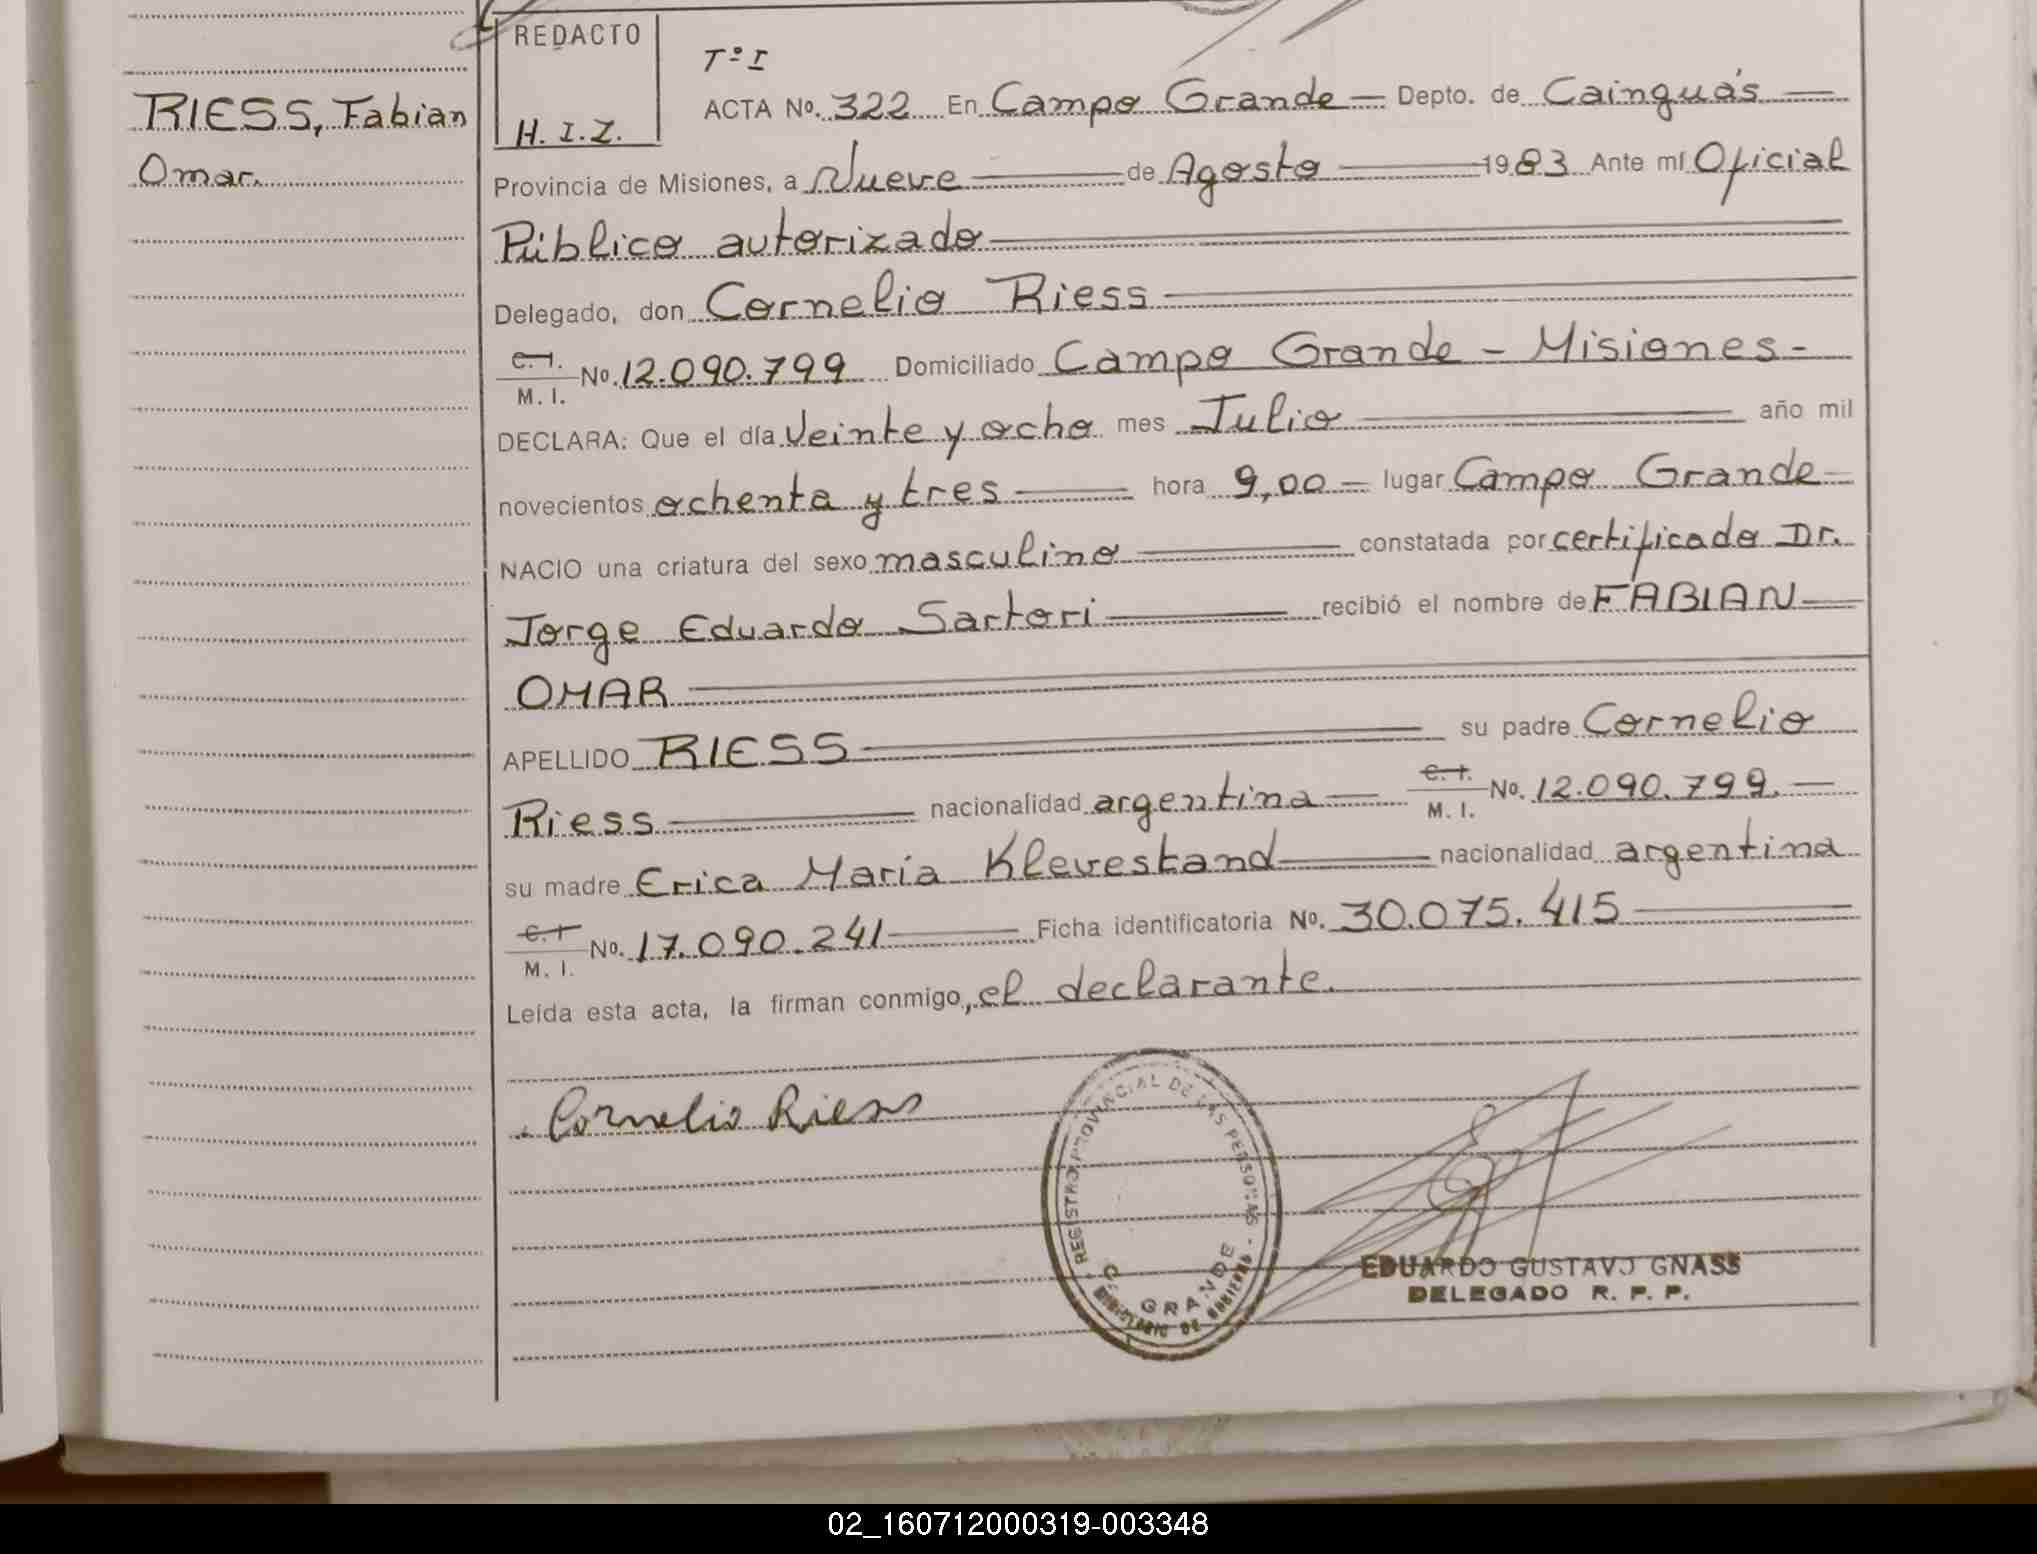 RIESS, Fabian
Omar.
REDACTO
H. I. Z.
Tº I
ACTA Nº. 322 En Campo Grande — Depto. de Cainguás —
Provincia de Misiones, a Nueve — de Agosto — 1983 Ante mí Oficial
Público autorizado —
Delegado, don Cornelio Riess —
C. I.
M. I. Nº. 12.090.799 Domiciliado Campo Grande - Misiones -
DECLARA: Que el día Veinte y ocho mes Julio — año mil
novecientos ochenta y tres — hora 9,00 — lugar Campo Grande —
NACIO una criatura del sexo masculino — constatada por certificado Dr.
Jorge Eduardo Sartori — recibió el nombre de FABIAN —
OMAR —
APELLIDO RIESS — su padre Cornelio
Riess — nacionalidad argentina — C. I.
M. I. Nº. 12.090.799. —
su madre Erica María Klevestand — nacionalidad argentina
C. I.
M. I. Nº. 17.090.241 — Ficha identificatoria Nº. 30.075.415 —
Leída esta acta, la firman conmigo, el declarante.
Cornelio Riess
REGISTRO PROVINCIAL DE LAS PERSONAS -
C. GRANDE
MINISTERIO DE GOBIERNO
EDUARDO GUSTAVO GNASS
DELEGADO R. P. P.
02_160712000319-003348